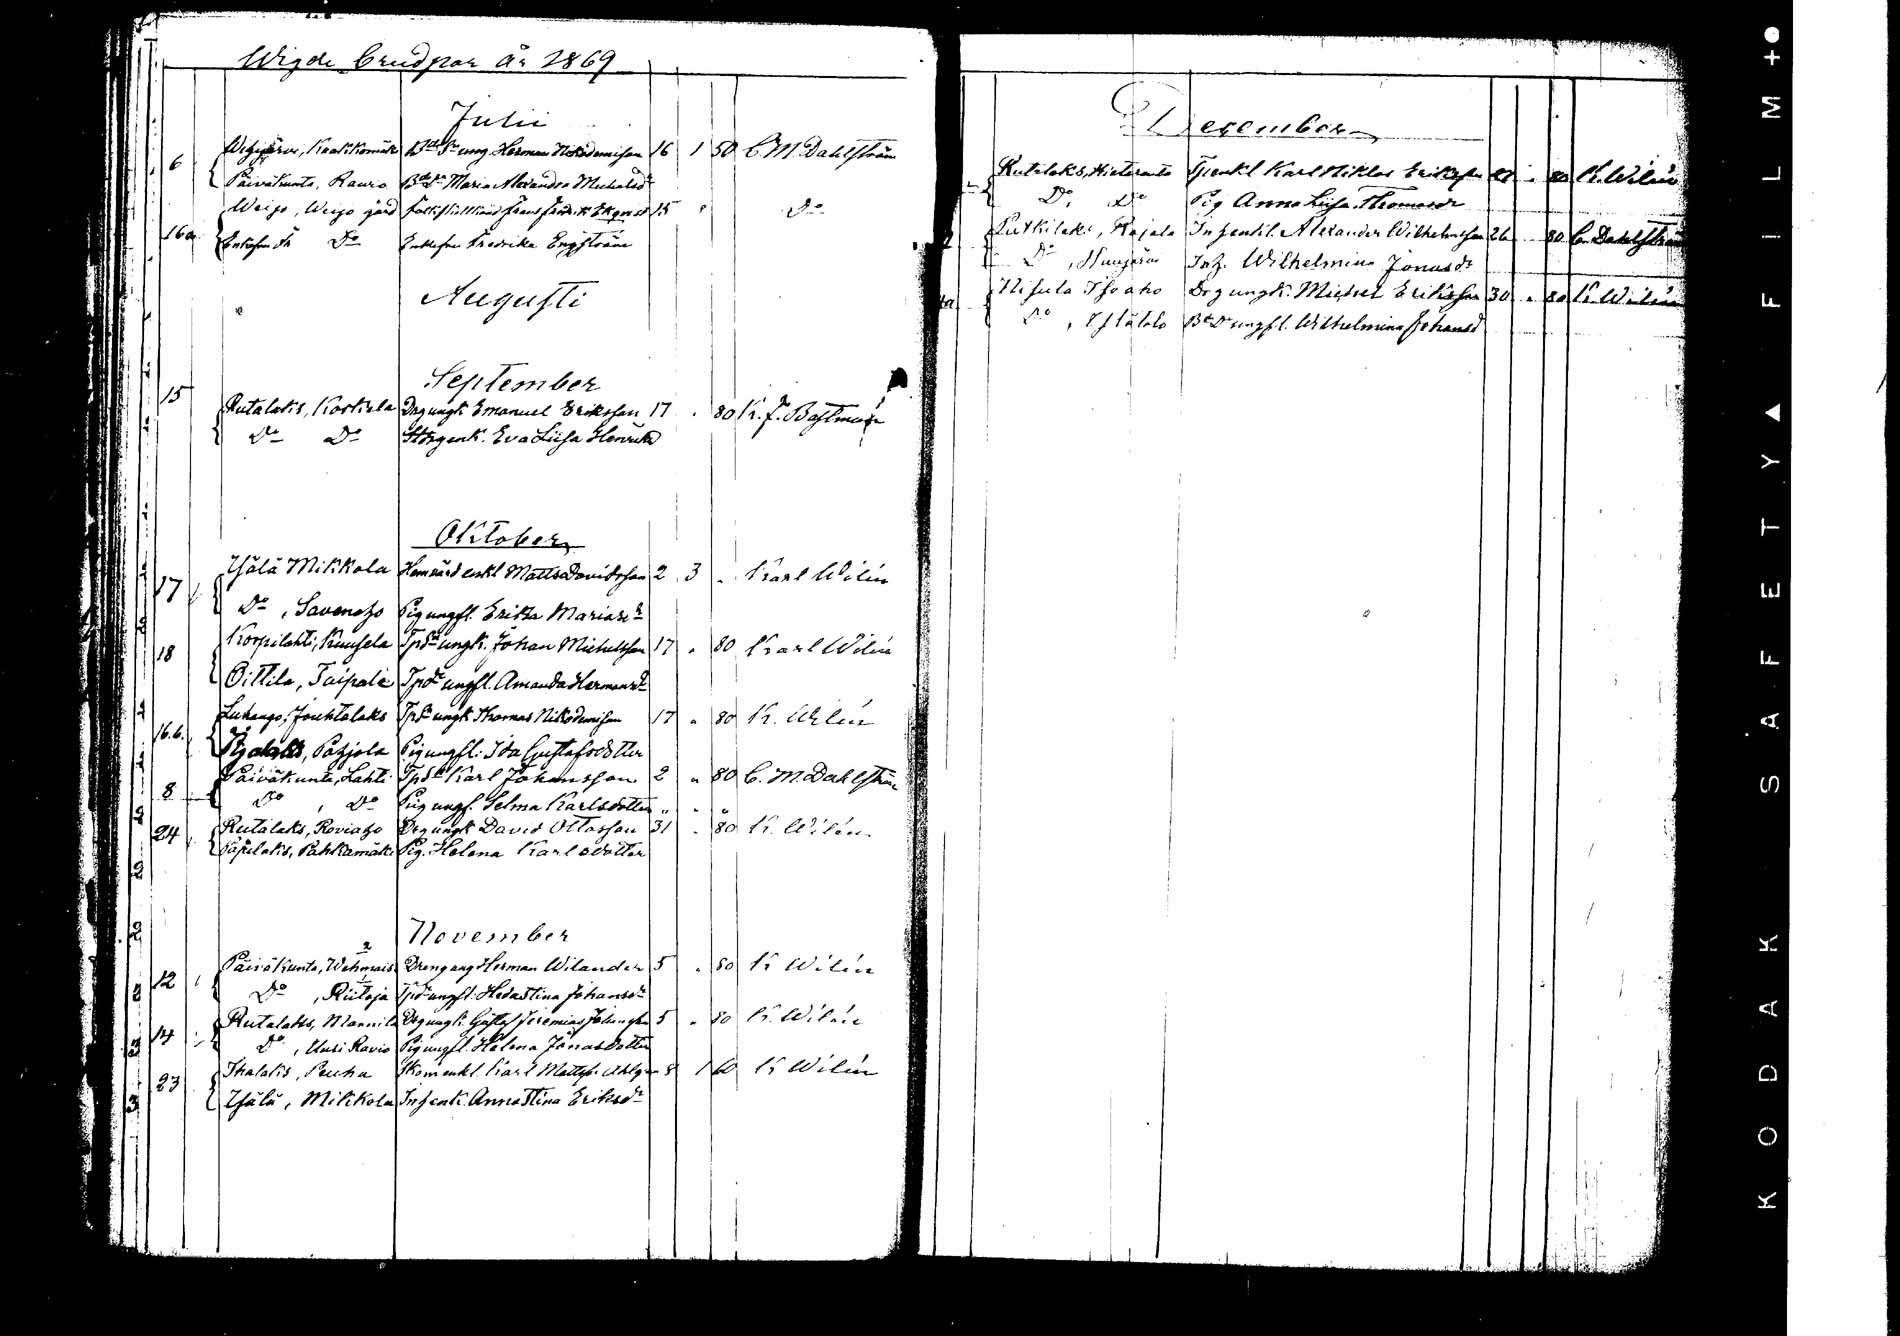 Wigde brudpar år 1869
Julii
6 Kaakkomäki Bd Sn ung. Herman Nikodemisson 16 1 50 C. M. Dahlström
Päiväkunta, Rauvo Bd Dr Maria Alexandra Michelsdr
Weijo, Weijo gård Frans Fredrik Ekqvist 15 " Do
16a Do Enkefru Fredrika Engström
Augusti
September
15 Rutalaks, Korkela Drg ungk Emanuel Eriksson 17 . 80 K. F. Bastman
Do Do Eva Liisa Henriksd
Oktober
17 Ylälä Mikkola Hemvärd enkl Matts Davidsson 2 3 . Karl Wilén
Do , Savenaho Pig ungfl. Erika Mariasdr
18 Korpilahti, Kuusela Tpsn ungk. Johan Michelsson 17 . 80 Karl Wilén
Oittila, Taipale Tpdr ungfl. Amanda Hermansdr
16.b. Luhango, Jouhtolaks Tpsn ungk Thomas Nikodemisson 17 " 80 K. Wilén
Pohjola Pig ungfl. Ida Gustafsdotter
8 Päiväkunta, Lahti Tpsn Karl Johansson 2 " 80 C. M. Dahlström
Do , Do Pig ungf. Selma Karlsdotter " . "
24 Rutalaks, Roviaho Drg ungk David Ottosson 31 . 80 K. Wilén
Pahkamäki Pig. Helena Karlsdotter
November
12 Päiväkunta, Wehmais Dreng ung Herman Wilander 5 . 80 K Wilén
Do , Riitoja Tpdr ungfl. Heda Stina Johansdr
14 Rutalaks, Mannila Drg ungk. Gustaf Jeremias Johansson 5 . 80 K. Wilén
Do , Uusi Ravio Pig ungfl. Helena Jonasdotter
23 Ihalaks, Peuha Skom enkl. Karl Mattss. Ahlgren 8 1 60 K Wilén
Ylälä, Mikkola Inh enk. Anna Stina Eriksdr
December
Rutalaks, Hietaranta Tpenkl Karl Niklas Eriksson 27 . 80 K. Wilén
Do, Do Pig Anna Liisa Thomasdr
Putkilaks, Rajala Alexander Wilhelmsson 26 80 C. Dahlström
Do , Inh. Wilhelmina Jonasdr
Nisula Isoaho Drg ungk. Michel Eriksson 30 . 80 K Wilén
Do , Bd Dr ungfl. Wilhelmina Johansd
KODAK SAFETY ▲ FILM